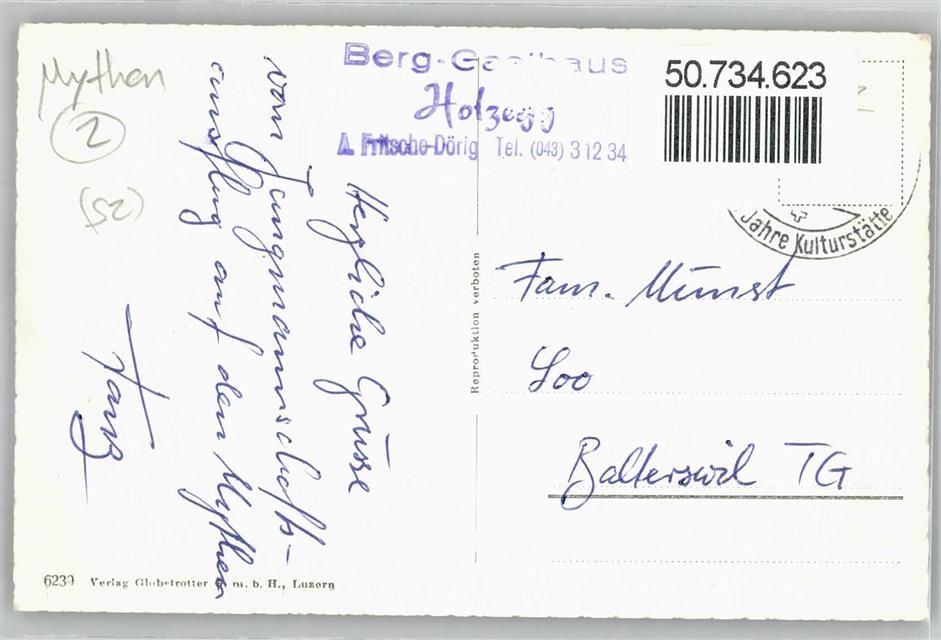 Mythen
2
(52)
Berg-Gasthaus
Holzegg
A. Fritsche-Dörig Tel. (043) 3 12 34
50.734.623
Jahre Kulturstätte
Herzliche Grüsse
vom Jungmannschafts-
ausflug auf den Mythen
Franz
Reproduktion verboten
Fam. Münst
Loo
Balterswil TG
6239 Verlag Globetrotter G. m. b. H., Luzern